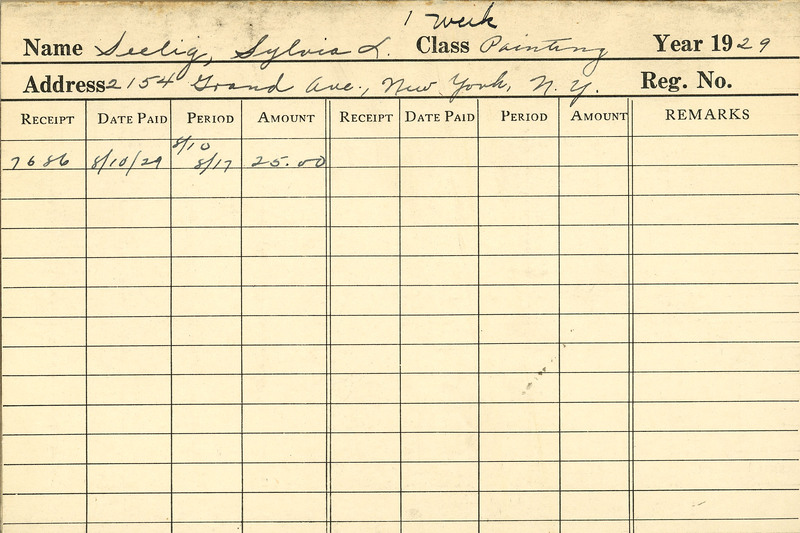 1 week
Name Seelig, Sylvia L. Class Painting Year 1929
Address 2154 Grand Ave., New York, N. Y. Reg. No.
RECEIPT DATE PAID PERIOD AMOUNT RECEIPT DATE PAID PERIOD AMOUNT REMARKS
8/10
7686 8/10/29 8/17 25.00